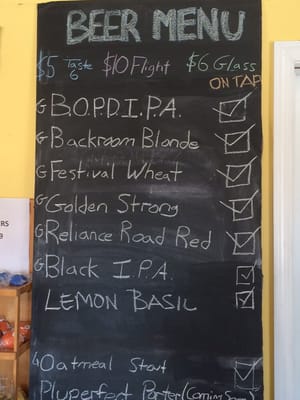 BEER MENU
$5 Taste 6 $10 Flight $6 Glass
ON TAP
G B.O.P.D.I.P.A.
G Backroom Blonde
G Festival Wheat
G Golden Strong
G Reliance Road Red
G Black I.P.A.
LEMON BASIL
4 Oatmeal Stout
Pluperfect Porter (Coming Soon)